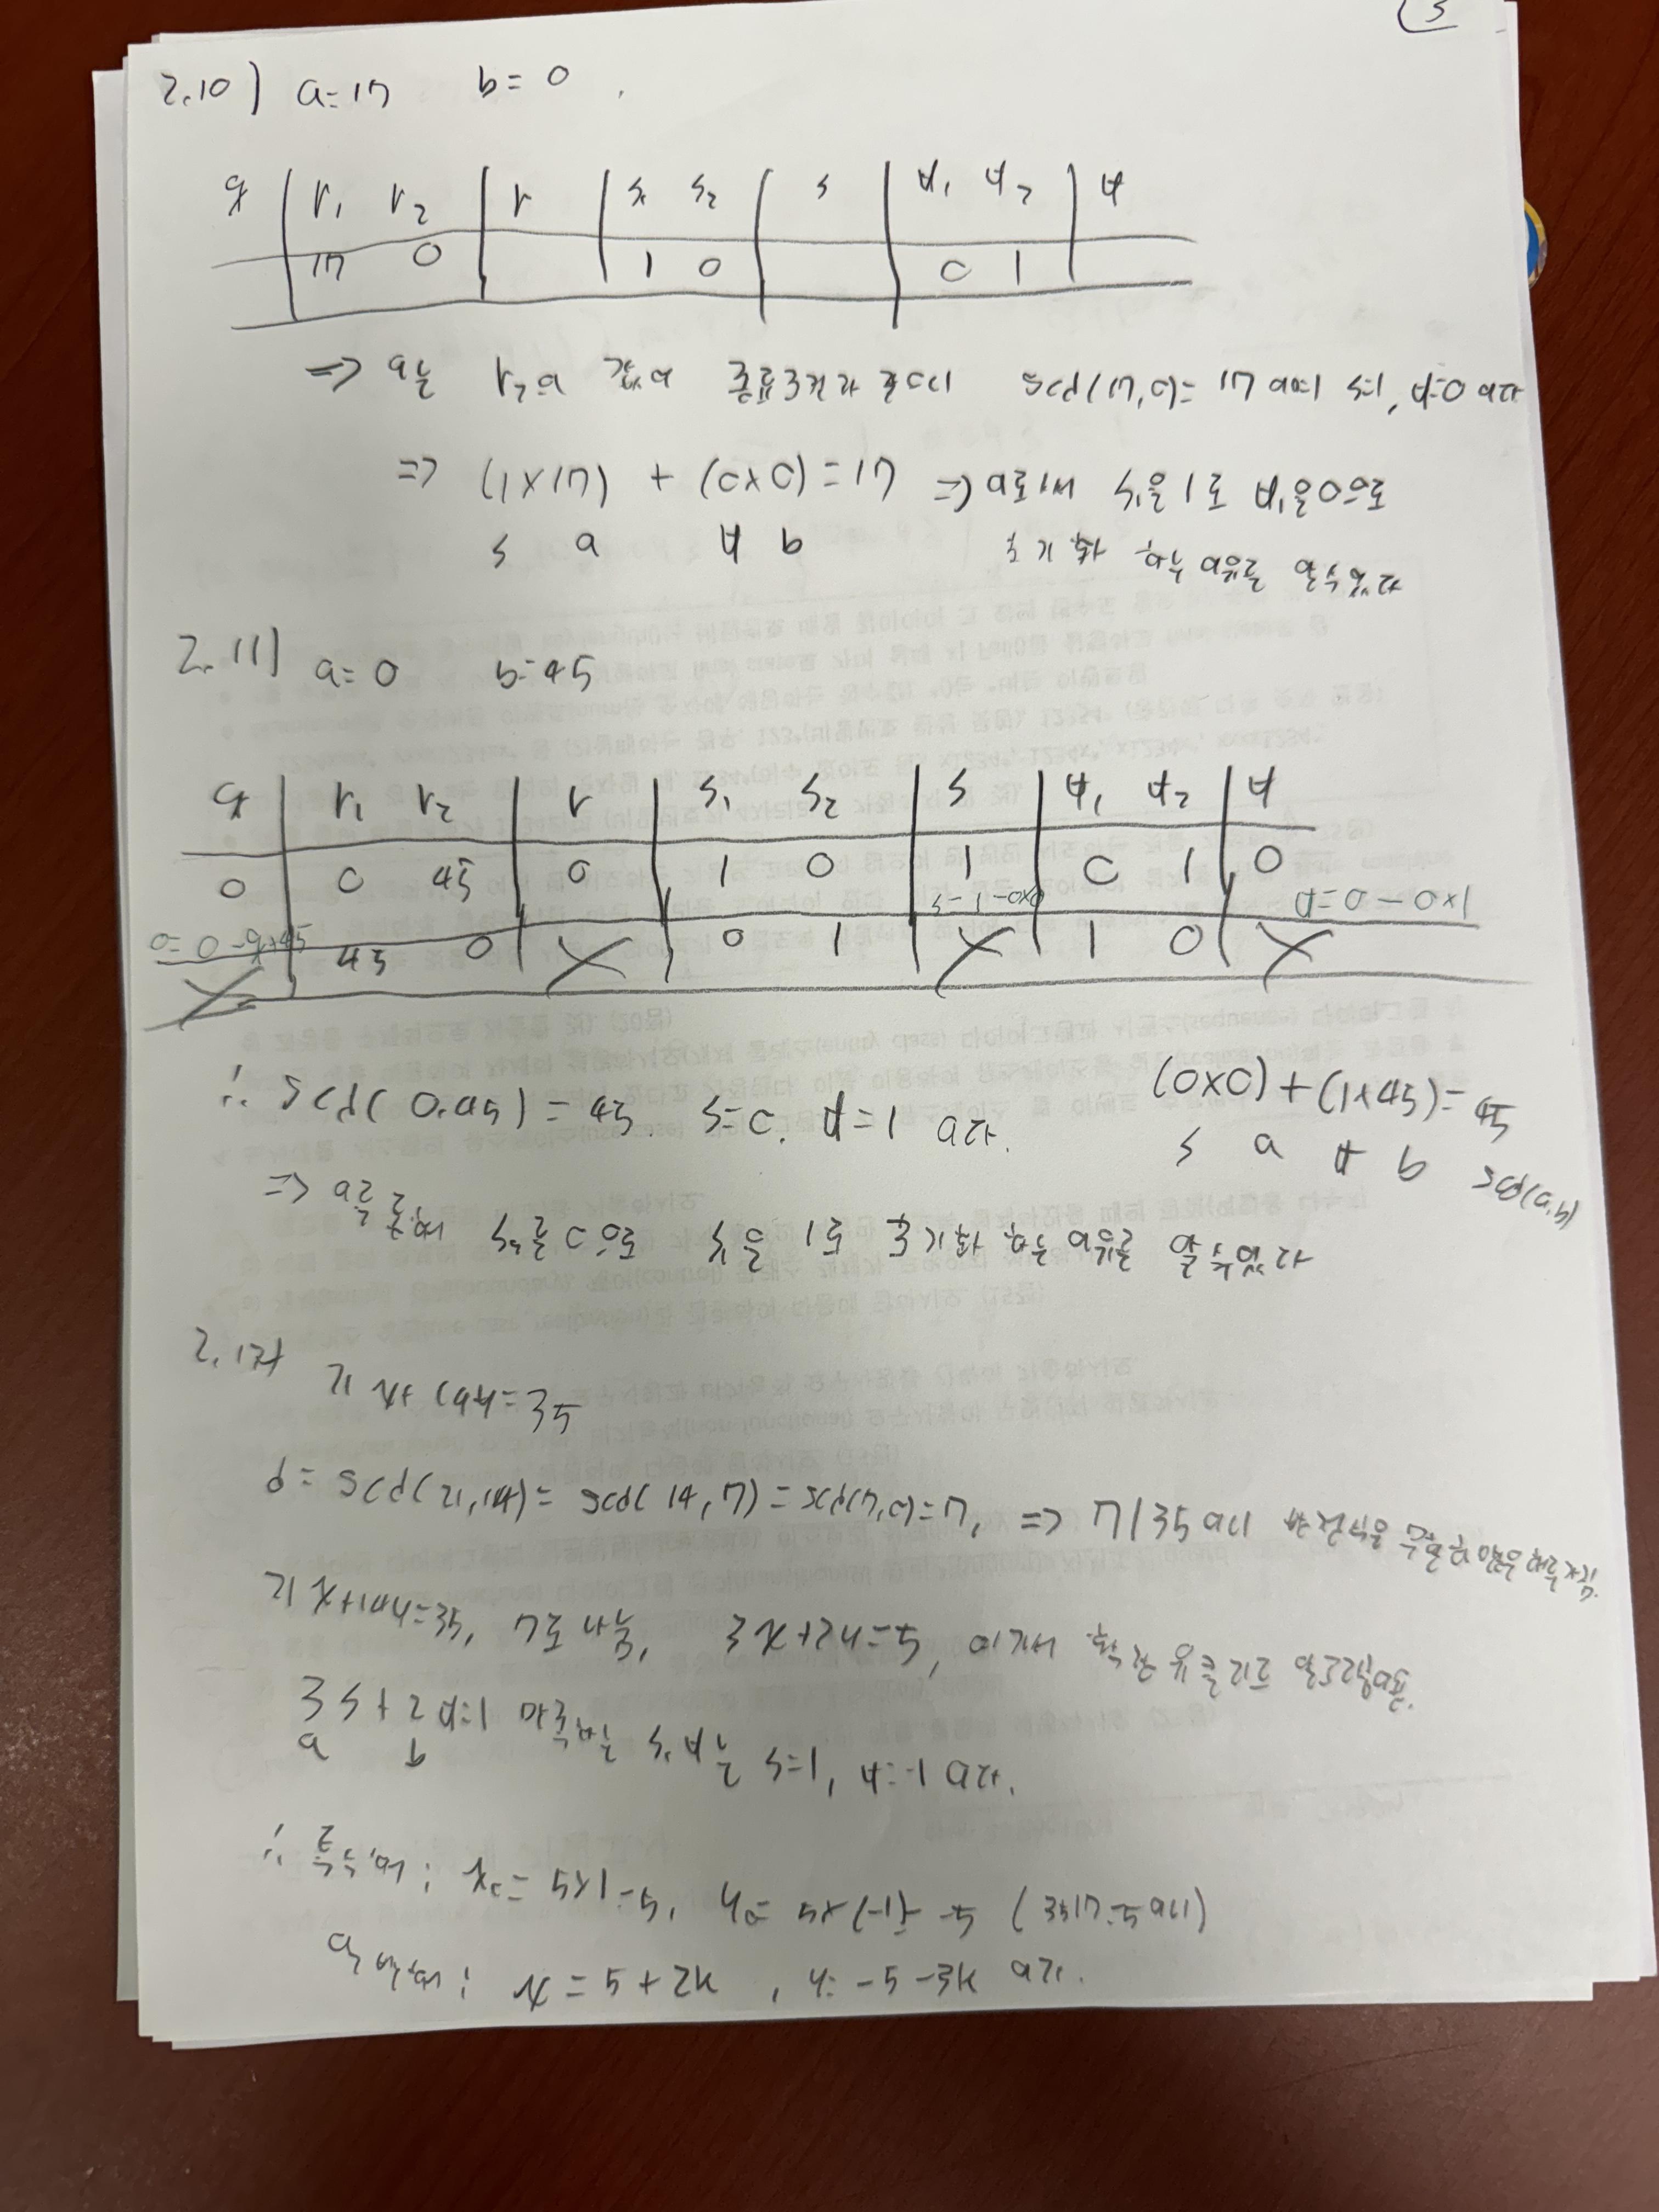 2.10) a=17 b=0
q r₁ r₂ r s₁ s₂ s t₁ t₂ t
17 0 1 0 0 1
⇒ 이는 r₂의 값이 종료조건과 같으니 gcd(17,0)=17 이며 s=1, t=0 이다
⇒ (1×17) + (0×0)=17 ⇒ 이로써 s₁을 1로 t₁을 0으로
s a t b 초기화 하는 이유를 알 수 있다
2.11) a=0 b=45
q r₁ r₂ r s₁ s₂ s t₁ t₂ t
0 0 45 0 1 0 1 0 1 0
0=0-q×45 s=1-0×0 t=0-0×1
45 0 0 1 1 0
∴ gcd(0,45)=45. s=0. t=1 이다. (0×0)+(1×45)=45
s a t b gcd(a,b)
⇒ 이를 통해 s₂를 0으로 s₁을 1로 초기화 하는 이유를 알 수 있다
2.12)
21x+14y=35
d=gcd(21,14)=gcd(14,7)=gcd(7,0)=7, ⇒ 7|35 이니 방정식을 무한히 많은 해를 가짐.
21x+14y=35, 7로 나눔, 3x+2y=5, 여기서 확장 유클리드 알고리즘 이용.
3s+2t=1 만족하는 s,t는 s=1, t=-1 이다.
a b
∴ 특수해: x₀=5×1=5, y₀=5×(-1)=-5 (35/7=5 이니)
일반해: x=5+2k, y=-5-3k 이다.